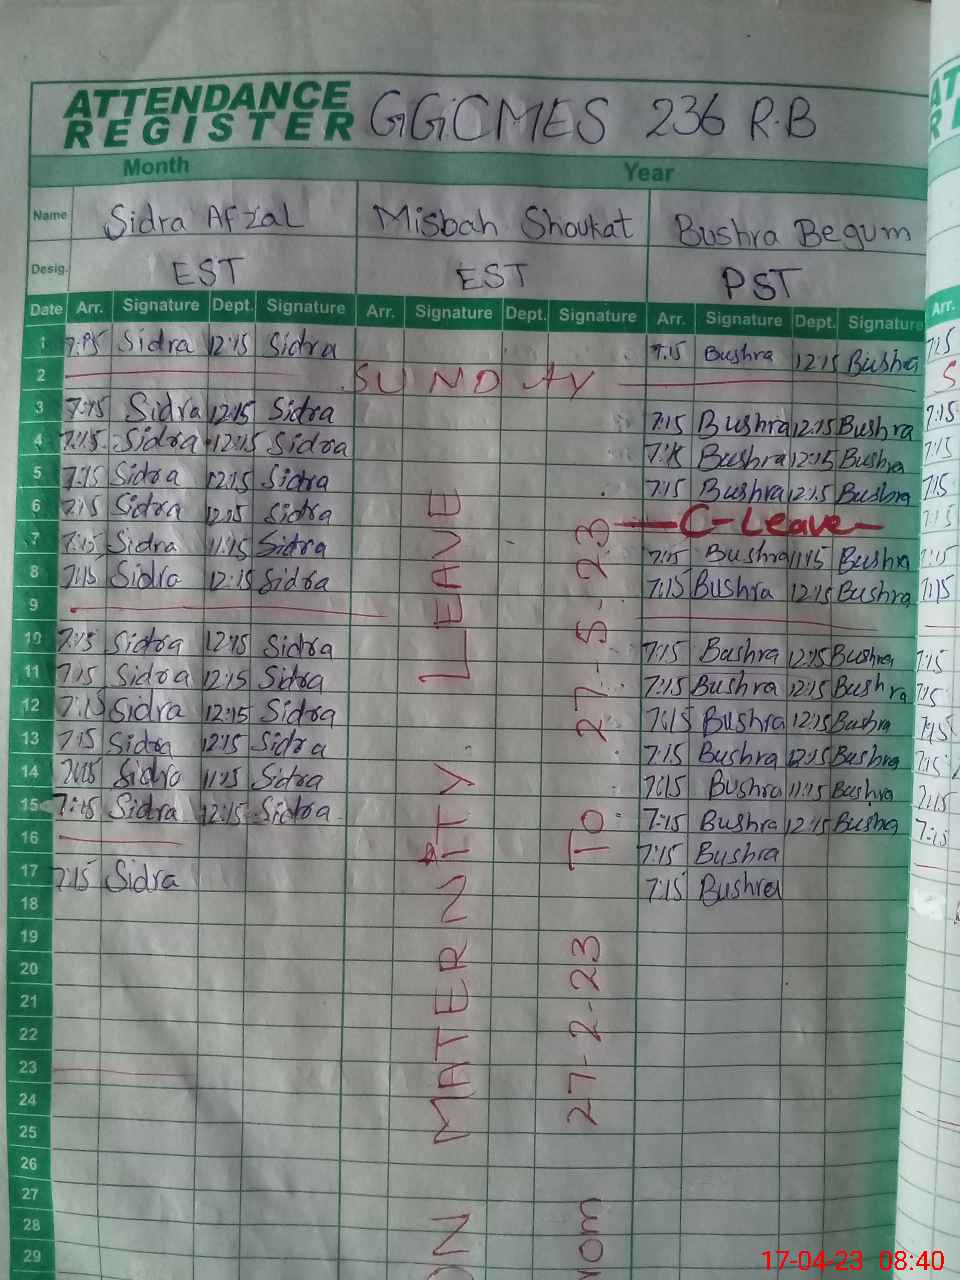 ATTENDANCE REGISTER GGCMES 236 R.B
Month Year
Name Sidra Afzal Misbah Shoukat Bushra Begum
Desig. EST EST PST
Date Arr. Signature Dept. Signature Arr. Signature Dept. Signature Arr. Signature Dept. Signature Arr.
1 Sidra 12:15 Sidra 7:15 Bushra 12:15 Bushra 7:15
2 SUNDAY S
3 7:15 Sidra 12:15 Sidra 7:15 Bushra 12:15 Bushra 7:15
4 7:15 Sidra 12:15 Sidra 7:15 Bushra 12:15 Bushra 7:15
5 7:15 Sidra 12:15 Sidra 7:15 Bushra 12:15 Bushra 7:15
6 7:15 Sidra 12:15 Sidra C-Leave 7:15
7 7:15 Sidra 11:15 Sidra 7:15 Bushra 11:15 Bushra 7:15
8 7:15 Sidra 12:15 Sidra 7:15 Bushra 12:15 Bushra 7:15
9
10 7:15 Sidra 12:15 Sidra 7:15 Bushra 12:15 Bushra 7:15
11 7:15 Sidra 12:15 Sidra 7:15 Bushra 12:15 Bushra 7:15
12 7:15 Sidra 12:15 Sidra 7:15 Bushra 12:15 Bushra 7:15
13 7:15 Sidra 12:15 Sidra 7:15 Bushra 12:15 Bushra 7:15
14 7:15 Sidra 11:15 Sidra 7:15 Bushra 11:15 Bushra 7:15
15 7:15 Sidra 12:15 Sidra 7:15 Bushra 12:15 Bushra 7:15
16 7:15 Bushra
17 7:15 Sidra 7:15 Bushra
18
19
20
21
22
23
24
25
26
27
28
29
ON MATERNITY LEAVE
27-2-23 To 27-5-23
17-04-23 08:40